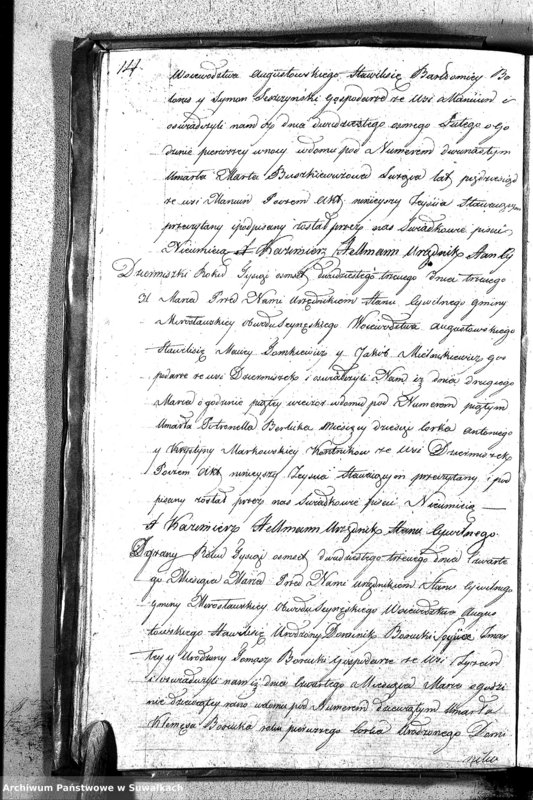 144
Woiewodztwa Augustowskiego, Stawilisię Bartłomiey Bo
y Szymon Gospodarze ze Wsi
oswiadczyli nam iz dnia dwudziestego osmego Lutego o go
dzinie pierwszey w nocy w domu pod Numerem dwunastym
Umarła Marta Buszkiewiczowa lat pięćdziesiąt
ze wsi Poczem Akt ninieyszy Zeyscia Stawaiącym
przeczytany y podpisany został przez nas Swiadkowie pisać
Nieumieią Kazimierz Hellmann Urzędnik Stanu Cy
Dzermiszki Roku Tysiąc osmset dwudziestego trzeciego dnia trzeciego
Marca Przed Nami Urzędnikiem Stanu Cywilnego gminy
Mirosławskiey Obwodu Seyneskiego Woiewodztwa Augustowskiego
Stawilisię Maury Tomkiewicz y Jakób gos
podarze ze wsi Dzermiszek i oswiadczyli Nam iz dnia drugiego
Marca o godzinie piątey wieczor w domu pod Numerem piątym
Umarła Petronella miesięcy dziesięć Corka Antoniego
y Krystyny Markowskiey ze wsi Dzermiszek
Poczem Akt ninieyszy Zeyscia Stawaiącym przeczytany i pod
pisany został przez nas Swiadkowie pisać Nieumieią
Kazimierz Hellmann Urzędnik Stanu Cywilnego.
Zgrany Roku Tysiąc osmset dwudziestego trzeciego dnia Czwarte
go Miesiąca Marca Przed Nami Urzędnikiem Stanu Cywilnego
Gminy Mirosławskiey Obwodu Seyneskiego Woiewodztwa Augus
towskiego Stawilisię Urodzony Dominik Borucki Oyciec Zmar
łey y Urodzony Tomasz Borucki Gospodarze ze Wsi
i oswiadczyli nam iz dnia Czwartego Miesiąca Marca o godzi
nie dziewiątey rano w domu pod Numerem dziewiątym Umarła
Klemęsa Borucka roku pierwszego Corka Urodzonego Domi
nika
Archiwum Państwowe w Suwałkach